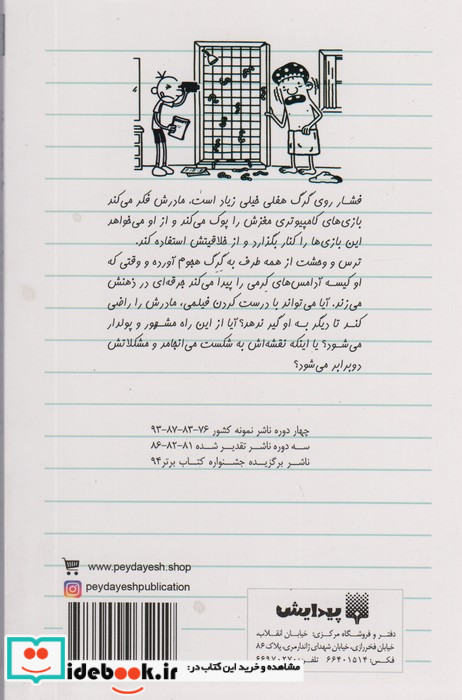 فشار روی گرگ هفلی خیلی زیاد است. مادرش فکر می‌کند
بازی‌های کامپیوتری مغزش را پوک می‌کند و از او می‌خواهد
این بازی‌ها را کنار بگذارد و از خلاقیتش استفاده کند.
ترس و وحشت از همه طرف به گرِگ هجوم آورده و وقتی که
او کیسه آدامس‌های کِرمی را پیدا می‌کند جرقه‌ای در ذهنش
می‌زند. آیا می‌تواند با درست کردن فیلمی، مادرش را راضی
کند تا دیگر به او گیر ندهد؟ آیا از این راه مشهور و پولدار
می‌شود؟ یا اینکه نقشه‌اش به شکست می‌انجامد و مشکلاتش
دوبرابر می‌شود؟
چهار دوره ناشر نمونه کشور ۷۶-۸۳-۸۷-۹۳
سه دوره ناشر تقدیر شده ۸۱-۸۲-۸۶
ناشر برگزیده جشنواره کتاب برتر ۹۴
www.peydayesh.shop
peydayeshpublication
پیدایش
دفتر و فروشگاه مرکزی: خیابان انقلاب،
خیابان فخررازی، خیابان شهدای ژاندارمری، پلاک ۸۶
فکس: ۶۶۴۰۱۵۱۴ تلفن: ۶۶۹۷۰۲۷۰
مشاهده و خرید این کتاب در:
idebook.ir